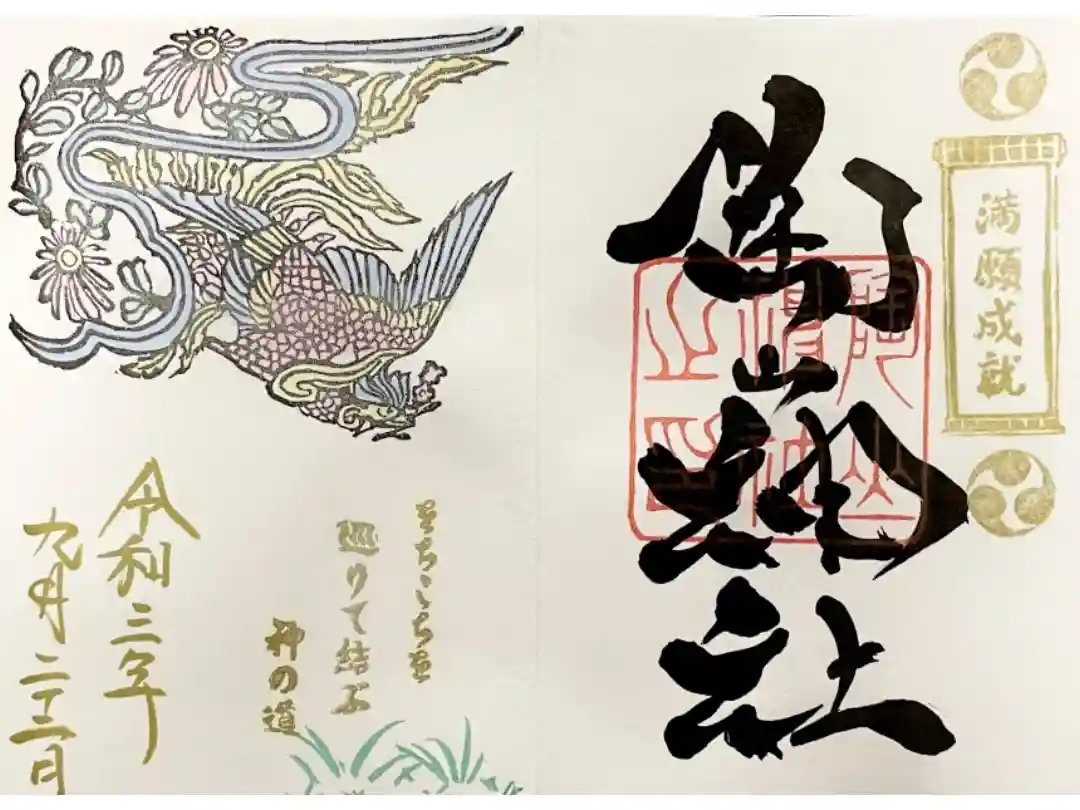 満願成就
御山神社
をちこちを
巡りて結ぶ
神の道
令和三年
九月二十二日